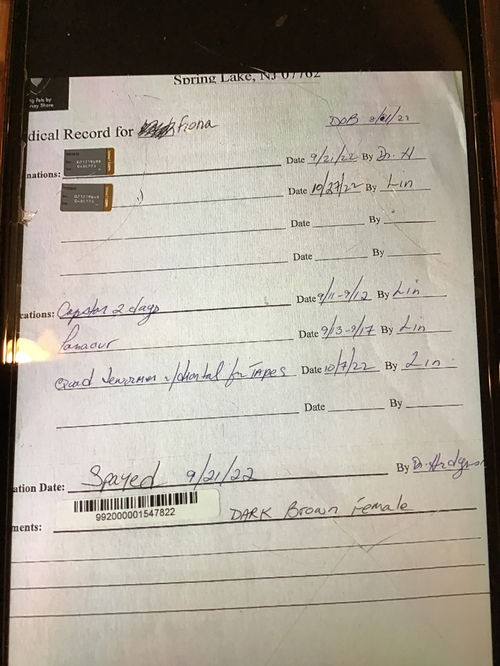 Spring Lake, NJ 07762
dical Record for Fiona DOB
nations: Date 9/21/22 By Dr. H
Date 10/27/22 By Lin
Date By
Date By
cations: Capstar 2 days Date 9/11-9/12 By Lin
Panacur Date 9/13-9/17 By Lin
Quad Dewormer for TAPES Date 10/7/22 By Lin
Date By
ation Date: Spayed 9/21/22 By Dr.
992000001547822
ments: DARK Brown Female